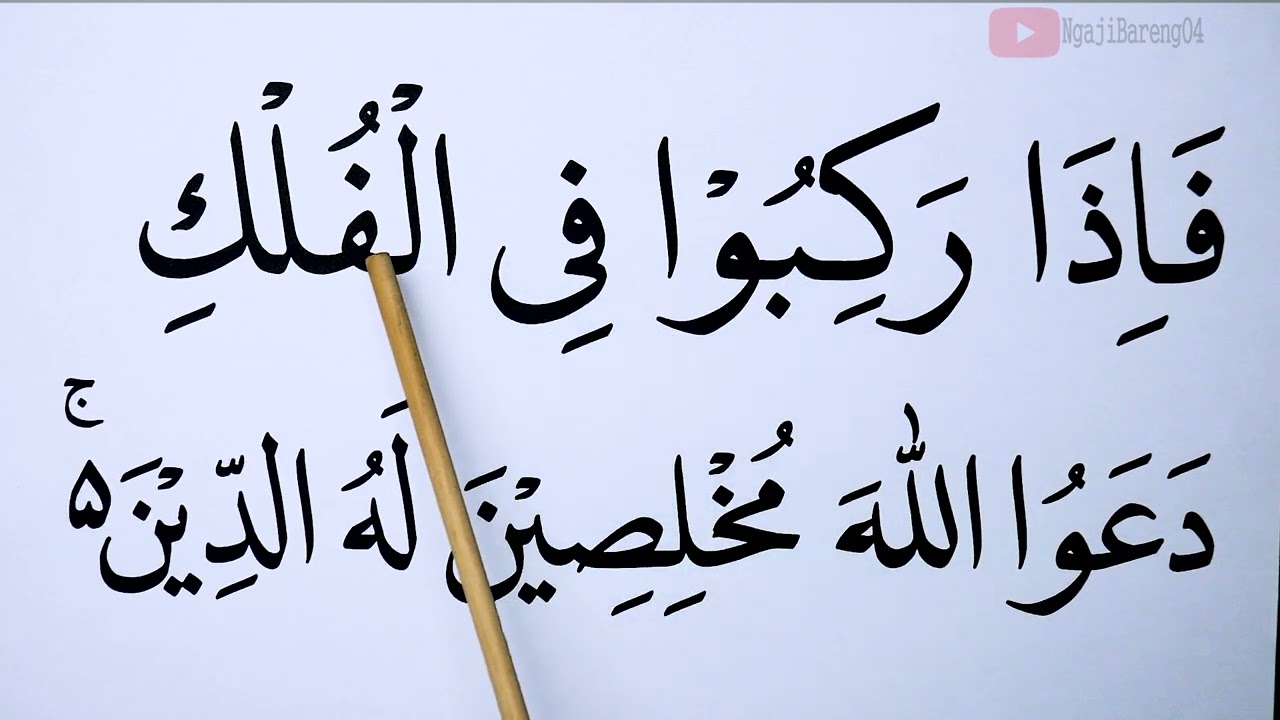 NgajiBareng04
فَاِذَا رَكِبُوْا فِى الْفُلْكِ
دَعَوُا اللّٰهَ مُخْلِصِيْنَ لَهُ الدِّيْنَ ۵ۚ